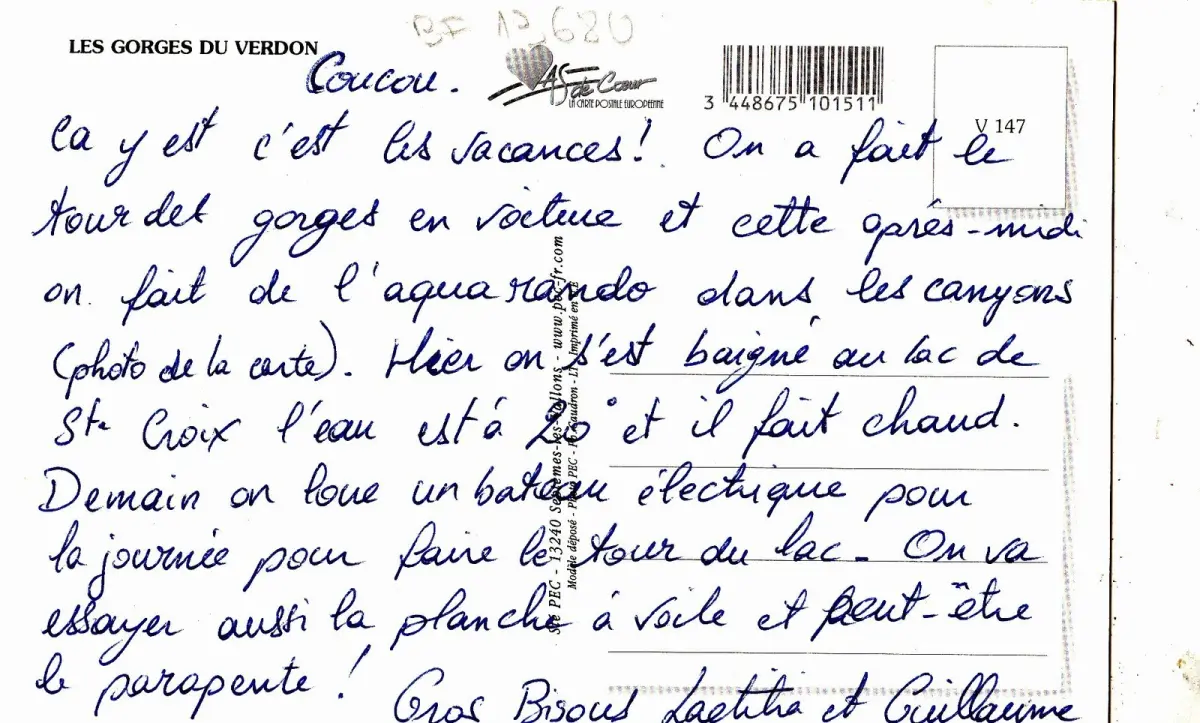 BF 13680
LES GORGES DU VERDON
Coucou.
AS de Cœur
LA CARTE POSTALE EUROPEENNE
3 448675 101511
V 147
Ca y est c'est les vacances! On a fait le
tour des gorges en voiture et cette après-midi
on fait de l'aquarando dans les canyons
(photo de la carte). Hier on s'est baigné au lac de
Ste Croix l'eau est à 20° et il fait chaud.
Demain on loue un bateau électrique pour
la journée pour faire le tour du lac - On va
essayer aussi la planche à voile et peut-être
le parapente !
Gros Bisous Laetitia et Guillaume
Sté PEC - 13240 Septèmes-les-Vallons - www.pec-fr.com
Modèle déposé - Photo PEC - Imprimé en CE